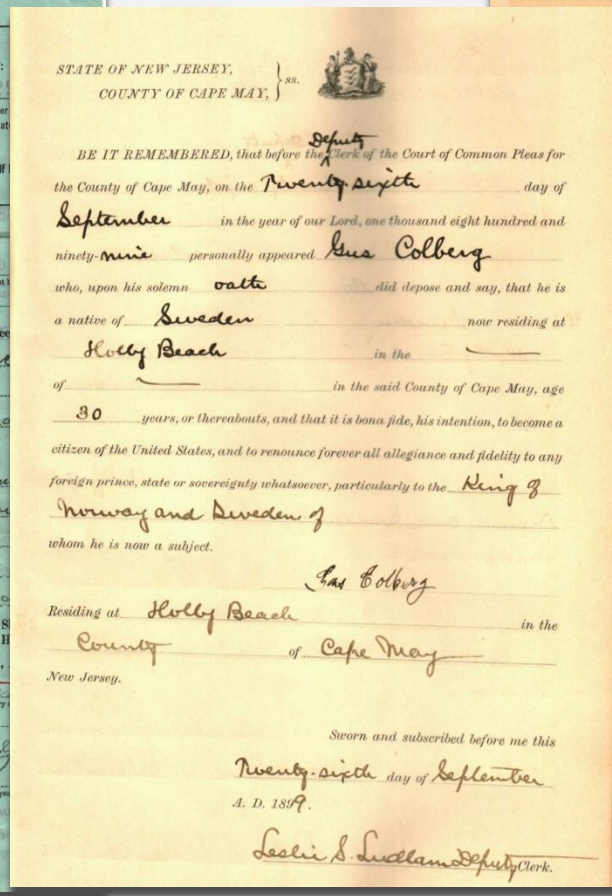 STATE OF NEW JERSEY,
COUNTY OF CAPE MAY, } ss.
Deputy
BE IT REMEMBERED, that before the ^ Clerk of the Court of Common Pleas for
the County of Cape May, on the Twenty-sixth day of
September in the year of our Lord, one thousand eight hundred and
ninety-nine personally appeared Gus Colberg
who, upon his solemn oath did depose and say, that he is
a native of Sweden now residing at
Holly Beach in the —
of — in the said County of Cape May, age
30 years, or thereabouts, and that it is bona fide, his intention, to become a
citizen of the United States, and to renounce forever all allegiance and fidelity to any
foreign prince, state or sovereignty whatsoever, particularly to the King of
Norway and Sweden of
whom he is now a subject.
Gus Colberg
Residing at Holly Beach in the
County of Cape May
New Jersey.
Sworn and subscribed before me this
Twenty-sixth day of September
A. D. 1899.
Leslie S. Ludlam Deputy Clerk.